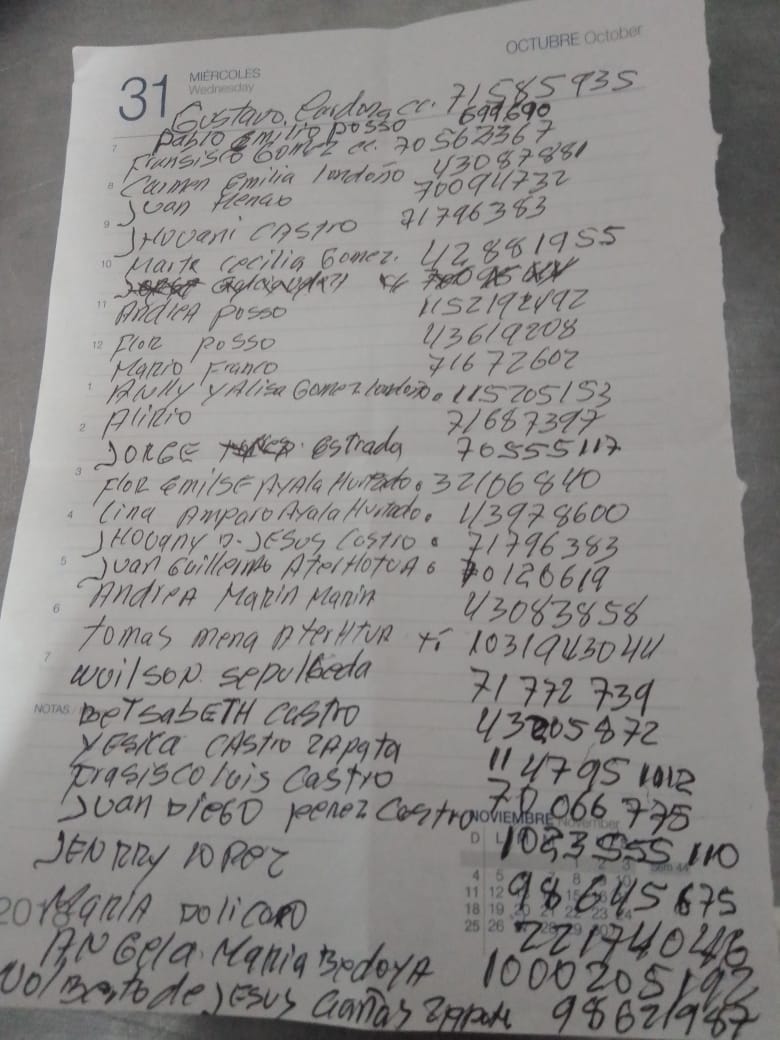 OCTUBRE October
31 MIÉRCOLES
Wednesday
Gustavo Cardona cc. 71585935
7 Pablo Emilio posso 699690
Fransisco Gomez cc. 70562367
8 Carmen Emilia londoño 43087881
Juan Henao 70094732
9 JHOVANI CASTRO 71796383
10 Marta cecilia Gomez. 42881955
11 ANdREA posso 1152192492
12 Flor posso 43619208
Mario Franco 71672602
1 ANlly YAlisa Gomez londoño. 115205153
2 Alirio 71687397
JORGE Estrada 70555117
3 Flor EmilSE AYAla Hurtado. 32106840
4 Lina Amparo Ayala Hurtado. 43978600
JHOvany D. JESUS Castro. 71796383
5 Juan Guillermo ATEHOTUA. 70120619
6 ANdREA MARIN MARIN 43083858
tomas mena ti 1031943044
7 WuilsoN. sepulbeda 71772739
NOTAS /
BETSabETH Castro 43205872
YESICA CAStro zapata 11 4795 1012
Frasisco luis CAStro 70066775
Juan DIEGO perez Castro 1033555110
NOVIEMBRE November
D L
JENRRY lopez 98645675
2018
MARIA 22174048
ANGela. MARIA BedoYA 1000205192
de JESUS zapata 98621987
1 2 3
4 5 8 9 10
11 12 15
18 19 20 21 22 23 24
25 26 28 29 30